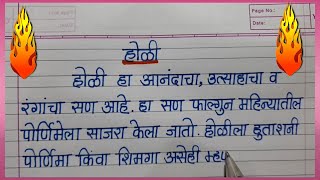 Page No.:
Date:
होळी
होळी हा आनंदाचा, उत्साहाचा व
रंगांचा सण आहे. हा सण फाल्गुन महिन्यातील
पोर्णिमेला साजरा केला जातो. होळीला हुताशनी
पोर्णिमा किंवा शिमगा असेही म्हण